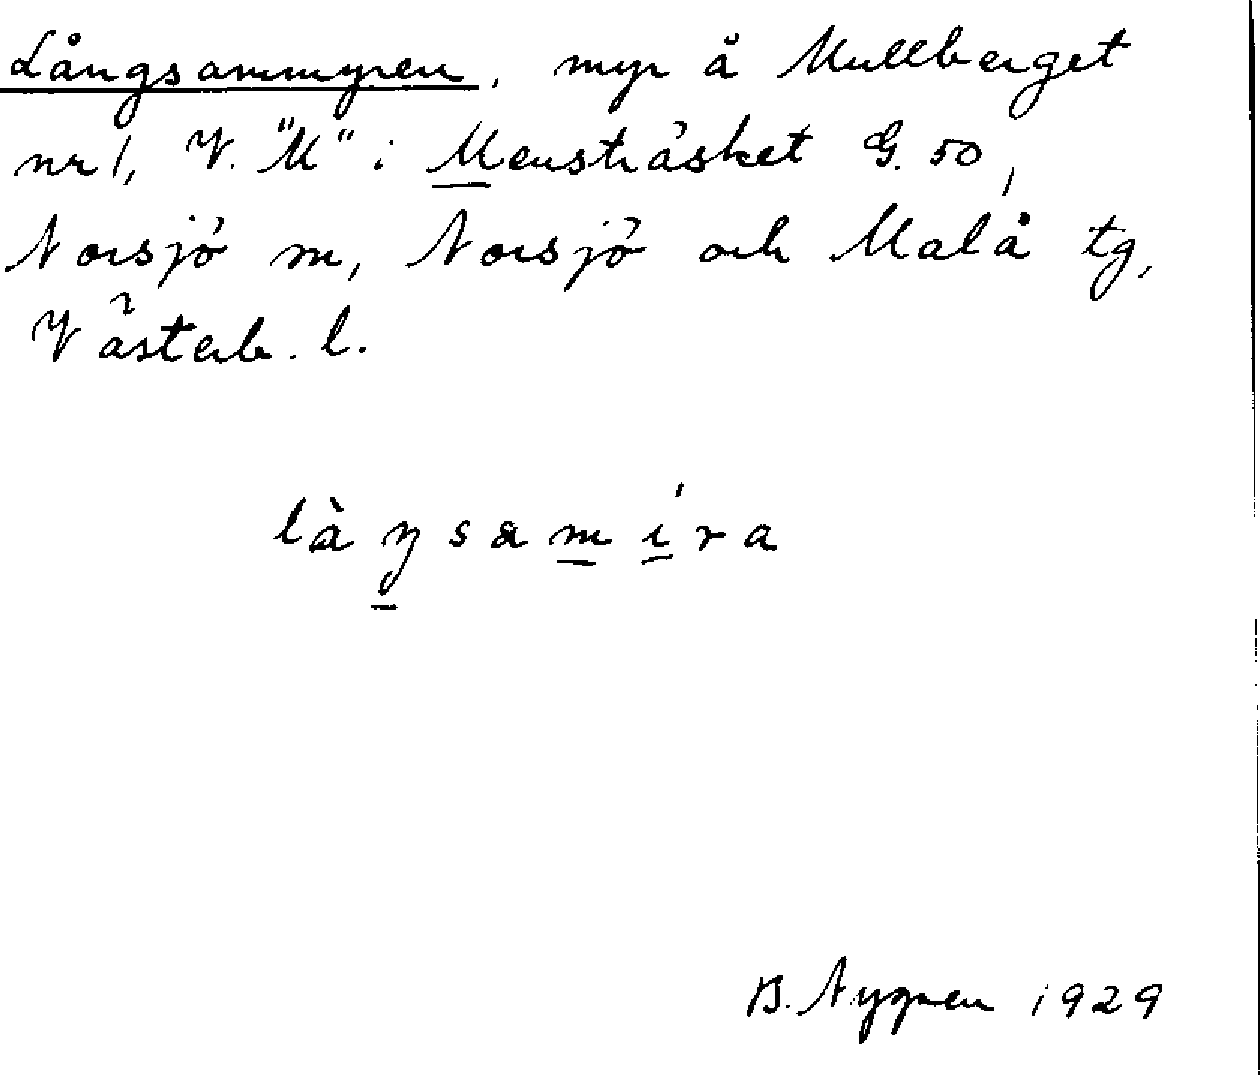 Långsammyren, myr å Mullberget
nr 1, V. "M" i Mensträsket G. 50,
Norsjö m, Norsjö och Malå tg,
Västerb. l.
làŋsamíra
B. Nygren 1929